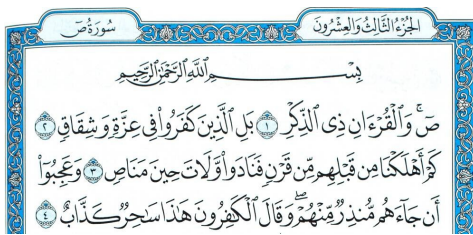 سُورَةُ صٓ
الجُزْءُ الثَّالِثُ وَالعِشْرُونَ
بِسْمِ اللَّهِ الرَّحْمَٰنِ الرَّحِيمِ
صٓ ۚ وَالْقُرْءَانِ ذِى الذِّكْرِ ١ بَلِ الَّذِينَ كَفَرُوا۟ فِى عِزَّةٍ وَشِقَاقٍ ٢
كَمْ أَهْلَكْنَا مِن قَبْلِهِم مِّن قَرْنٍ فَنَادَوا۟ وَّلَاتَ حِينَ مَنَاصٍ ٣ وَعَجِبُوٓا۟
أَن جَآءَهُم مُّنذِرٌ مِّنْهُمْ ۖ وَقَالَ الْكَٰفِرُونَ هَٰذَا سَٰحِرٌ كَذَّابٌ ٤